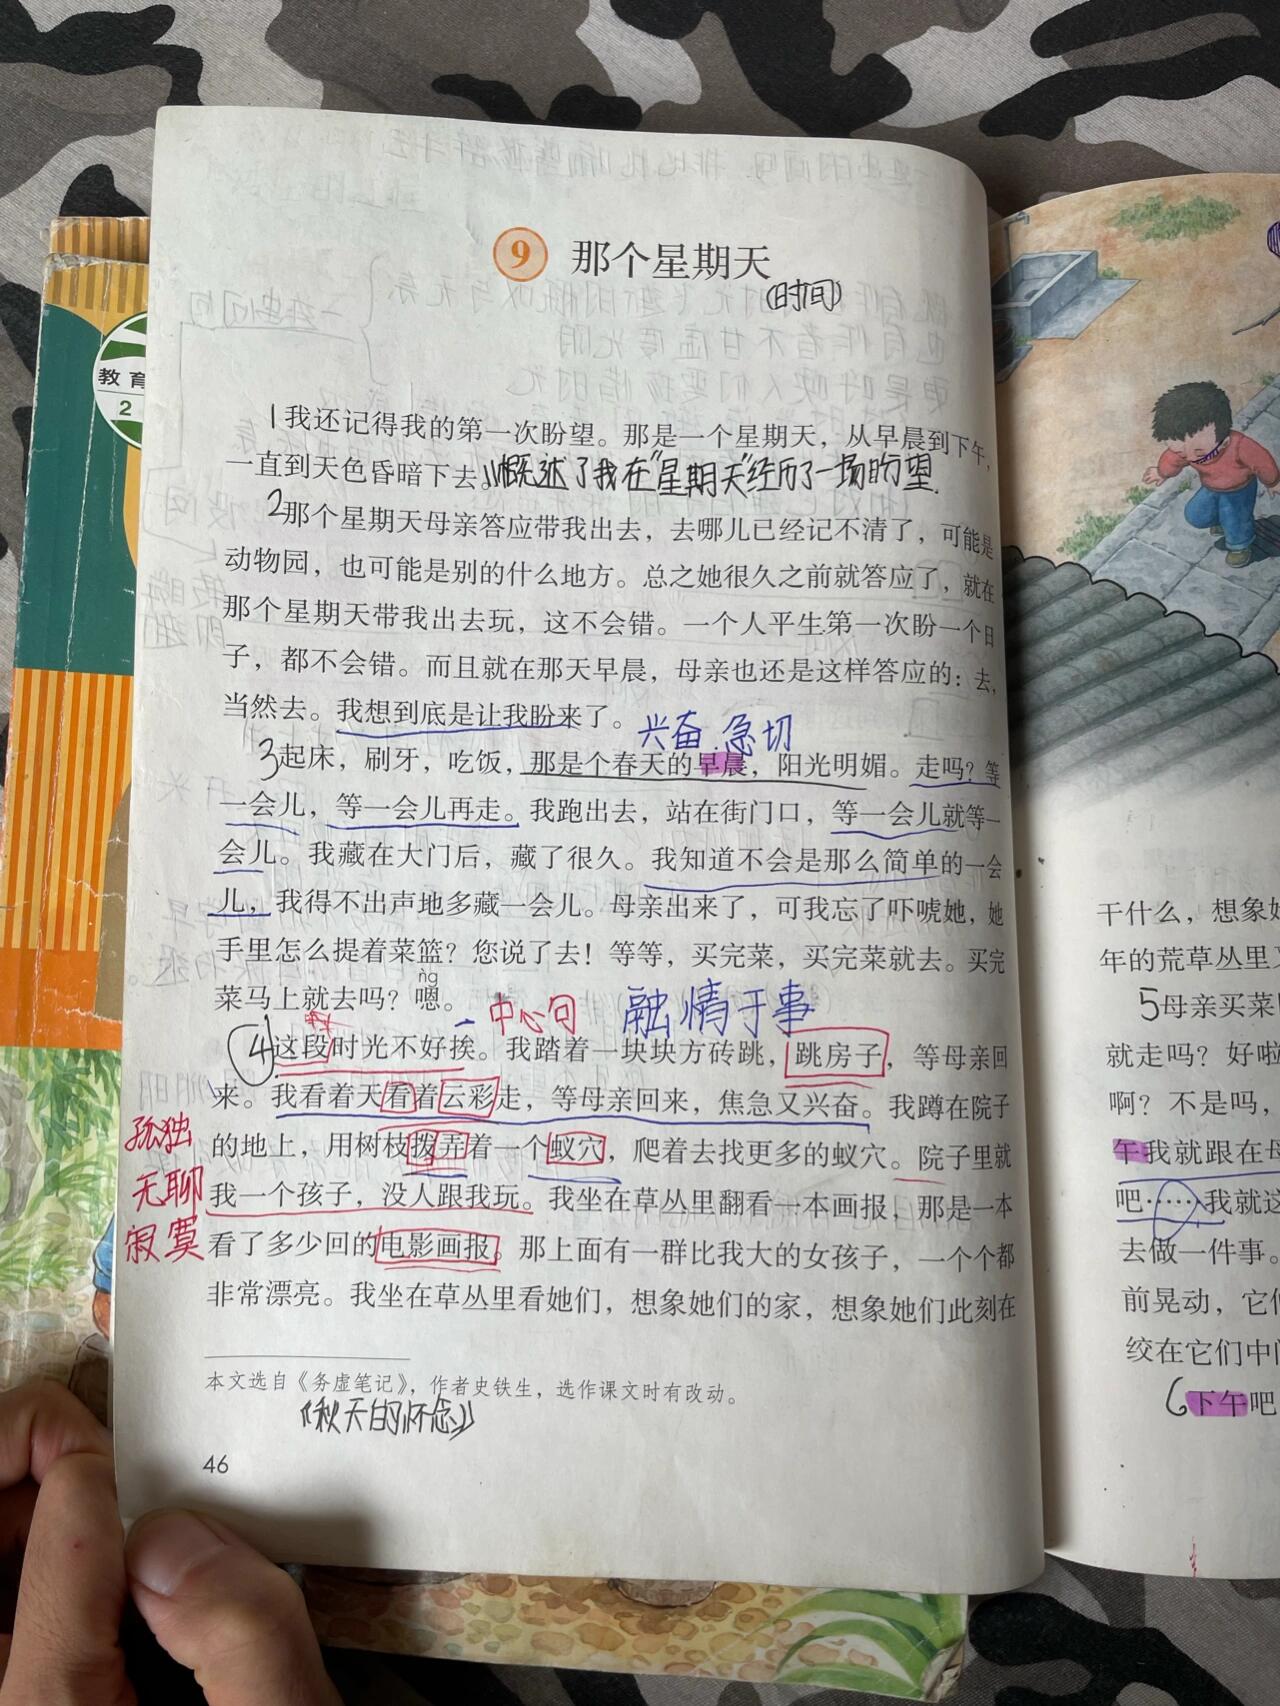 教育
2
9 那个星期天
（时间）
1我还记得我的第一次盼望。那是一个星期天，从早晨到下午，
一直到天色昏暗下去。概述了我在“星期天”经历了一场盼望.
2那个星期天母亲答应带我出去，去哪儿已经记不清了，可能是
动物园，也可能是别的什么地方。总之她很久之前就答应了，就在
那个星期天带我出去玩，这不会错。一个人平生第一次盼一个日
子，都不会错。而且就在那天早晨，母亲也还是这样答应的：去，
当然去。我想到底是让我盼来了。
兴奋.急切
3起床，刷牙，吃饭，那是个春天的早晨，阳光明媚。走吗？等
一会儿，等一会儿再走。我跑出去，站在街门口，等一会儿就等一
会儿。我藏在大门后，藏了很久。我知道不会是那么简单的一会
儿，我得不出声地多藏一会儿。母亲出来了，可我忘了吓唬她，她
手里怎么提着菜篮？您说了去！等等，买完菜，买完菜就去。买完
ǹg
菜马上就去吗？嗯。
中心句 融情于事
4这段时光不好挨。我踏着一块块方砖跳，跳房子，等母亲回
来。我看着天看着云彩走，等母亲回来，焦急又兴奋。我蹲在院子
的地上，用树枝拨弄着一个蚁穴，爬着去找更多的蚁穴。院子里就
我一个孩子，没人跟我玩。我坐在草丛里翻看一本画报，那是一本
看了多少回的电影画报。那上面有一群比我大的女孩子，一个个都
非常漂亮。我坐在草丛里看她们，想象她们的家，想象她们此刻在
孤独
无聊
寂寞
本文选自《务虚笔记》，作者史铁生，选作课文时有改动。
《秋天的怀念》
46
干什么，想象她
年的荒草丛里
5母亲买菜
就走吗？好啦
啊？不是吗，
午我就跟在母
吧……我就这
去做一件事。
前晃动，它们
绞在它们中间
6下午吧